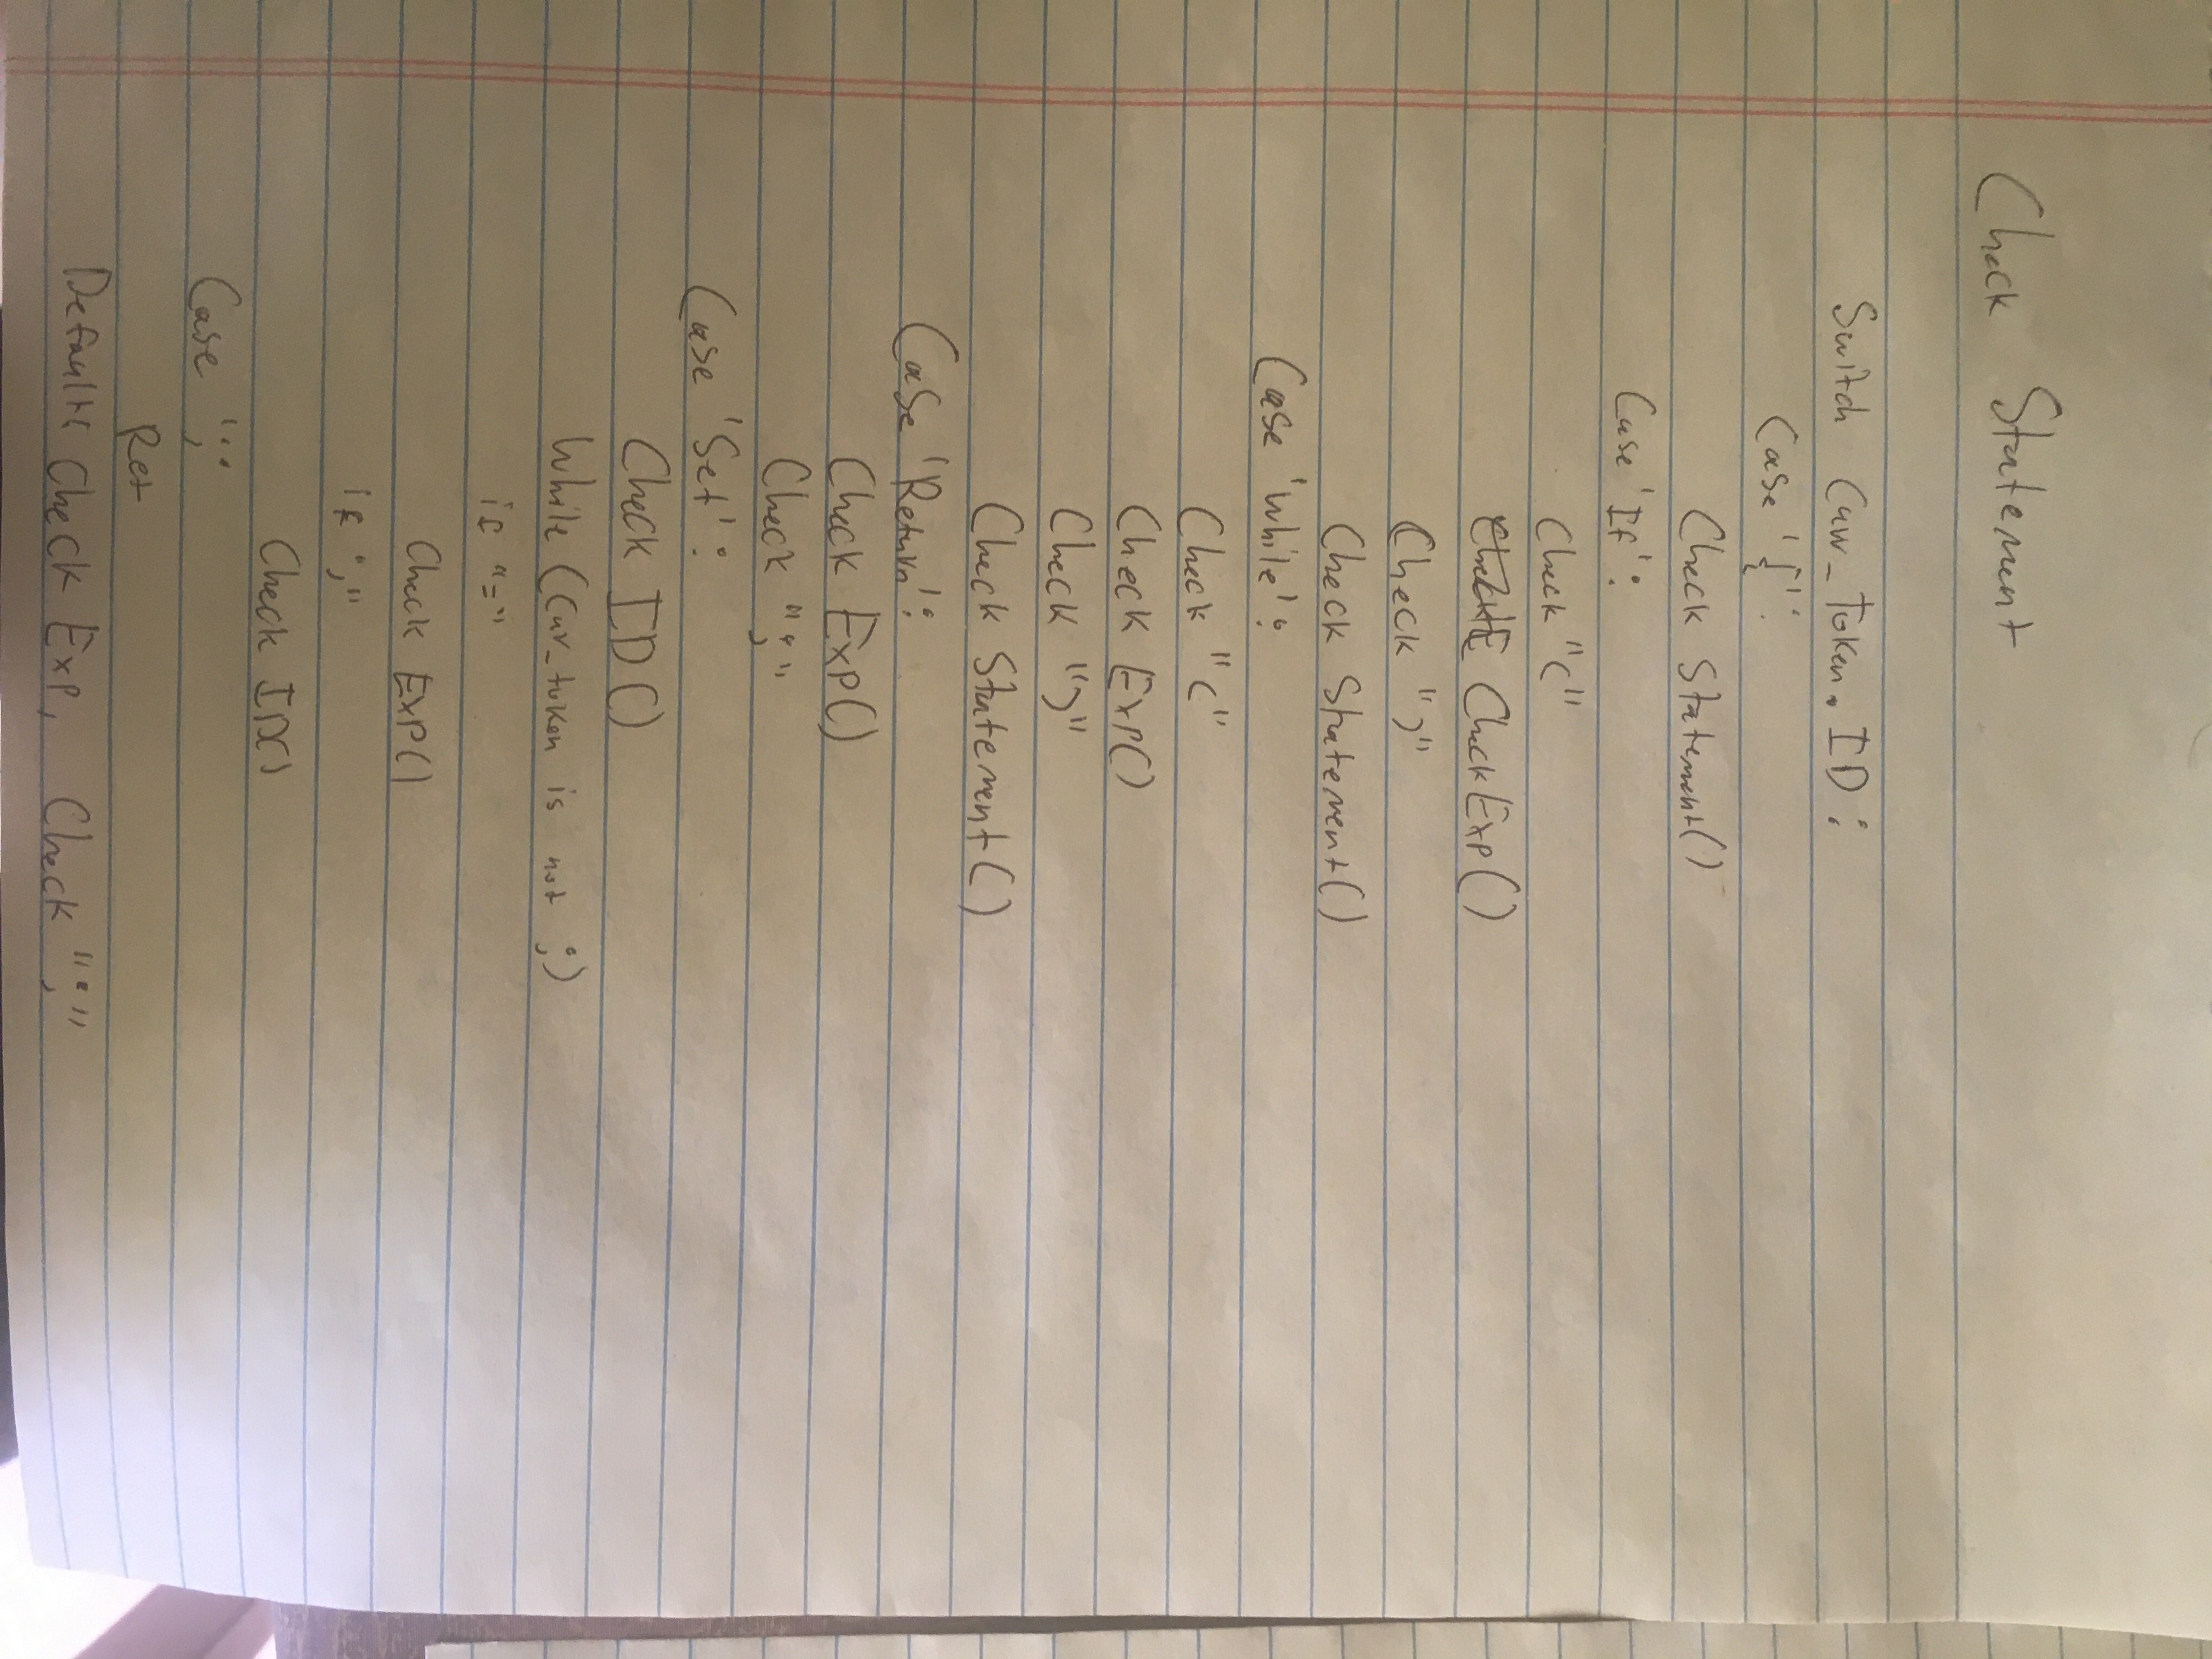 Check Statement
Switch Curr_Token.ID:
Case '{':
Check Statement()
Case 'If':
Check "("
Check Exp()
Check ")"
Check Statement()
Case 'While':
Check "("
Check Exp()
Check ")"
Check Statement()
Case 'Return':
Check Exp()
Check ";"
Case 'Set':
Check ID()
While (Cur_token is not ;)
if "="
Check Exp()
if ","
Check ID()
Case ';':
Ret
Default: Check Exp, Check ";"